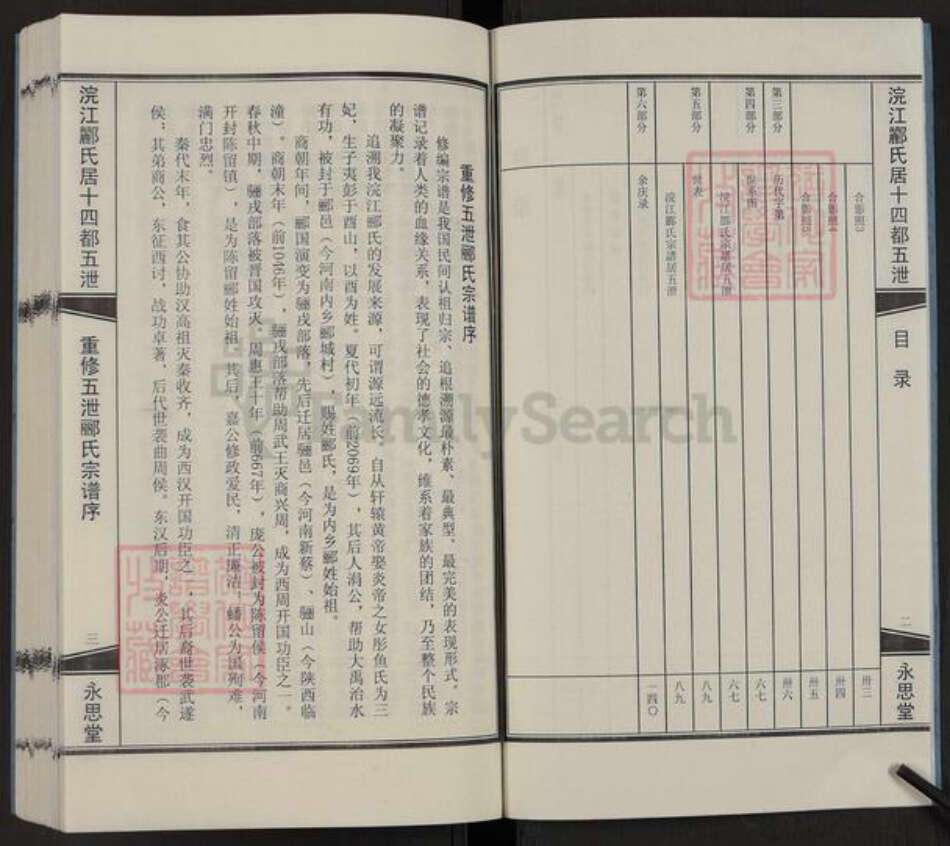 浣江酈氏居十四都五泄
目录
二
永思堂
合影照3 卅三
合影照4 卅四
合影照5 卅五
第三部分 历代字第 卅六
第四部分 世系图 六七
浣江酈氏宗譜居五泄 六七
第五部分 世表 八九
浣江酈氏宗譜居五泄 八九
第六部分 余庆录 一四〇
重修五泄酈氏宗谱序
修编宗谱是我国民间认祖归宗、追根溯源最朴素、最典型、最完美的表现形式。宗
谱记录着人类的血缘关系，表现了社会的德孝文化，维系着家族的团结，乃至整个民族
的凝聚力。
追溯我浣江酈氏的发展来源，可谓源远流长。自从轩辕黄帝娶炎帝之女彤鱼氏为三
妃，生子夷彭于酉山，以酉为姓。夏代初年（前2069年），其后人涓公，帮助大禹治水
有功，被封于酈邑（今河南内乡酈城村），赐姓酈氏，是为内乡酈姓始祖。
商朝年间，酈国演变为骊戎部落，先后迁居骊邑（今河南新蔡）、骊山（今陕西临
潼）。商朝末年（前1046年），骊戎部落帮助周武王灭商兴周，成为西周开国功臣之一。
春秋中期，骊戎部落被晋国攻灭。周惠王十年（前667年），庞公被封为陈留侯（今河南
开封陈留镇），是为陈留酈姓始祖。其后，嘉公修政爱民，清正廉洁；蟠公为国殉难，
满门忠烈。
秦代末年，食其公协助汉高祖灭秦收齐，成为西汉开国功臣之一，其后裔世袭武遂
侯；其弟商公，东征西讨，战功卓著，后代世袭曲周侯。东汉后期，炎公迁居涿郡（今
浣江酈氏居十四都五泄
重修五泄酈氏宗谱序
三
永思堂
FamilySearch